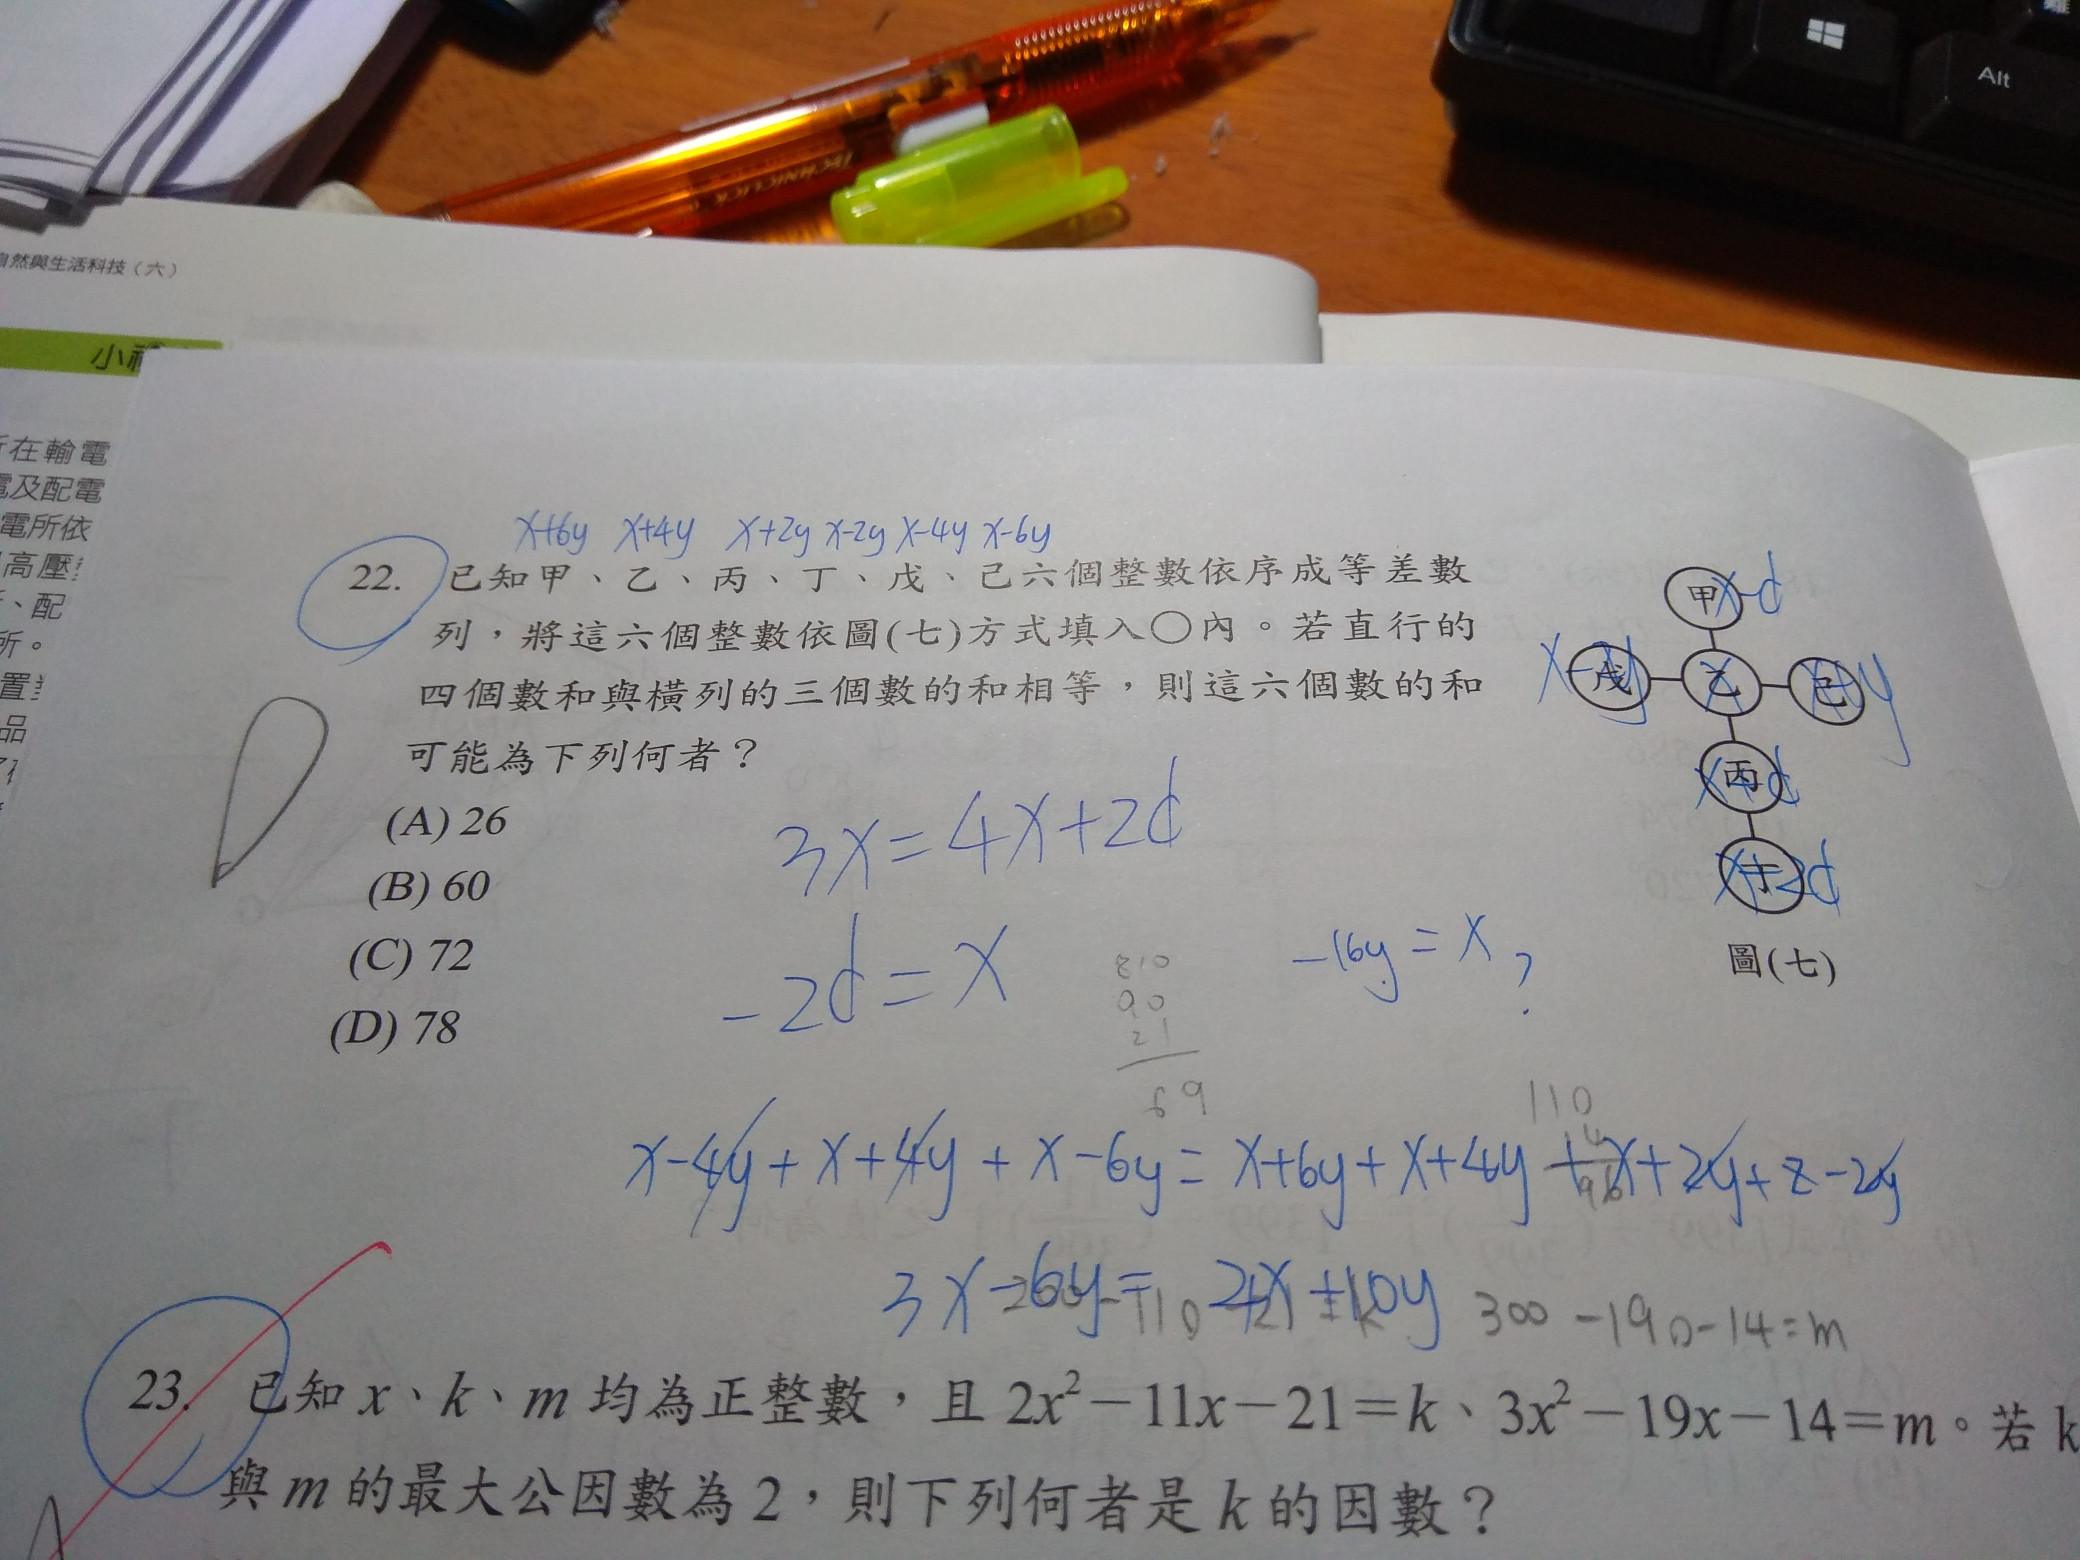 Alt
自然與生活科技(六)
在輸電
電及配電
電所依
高壓
、配
所。
置
品
x+6y x+4y x+2y x-2y x-4y x-6y
22. 已知甲、乙、丙、丁、戊、己六個整數依序成等差數
列，將這六個整數依圖(七)方式填入○內。若直行的
四個數和與橫列的三個數的和相等，則這六個數的和
可能為下列何者？
(A) 26
(B) 60
(C) 72
(D) 78
甲 x-d
戊 乙 己
丙
丁 x+2d
圖(七)
3x=4x+2d
-2d=x
-16y=x?
810
90
21
69
110
14
96
x-4y+x+4y+x-6y=x+6y+x+4y+x+2y+z-2y
3x-6y=4x+10y
300-190-14=m
23. 已知 x、k、m 均為正整數，且 2x²-11x-21=k、3x²-19x-14=m。若 k
與 m 的最大公因數為 2，則下列何者是 k 的因數？